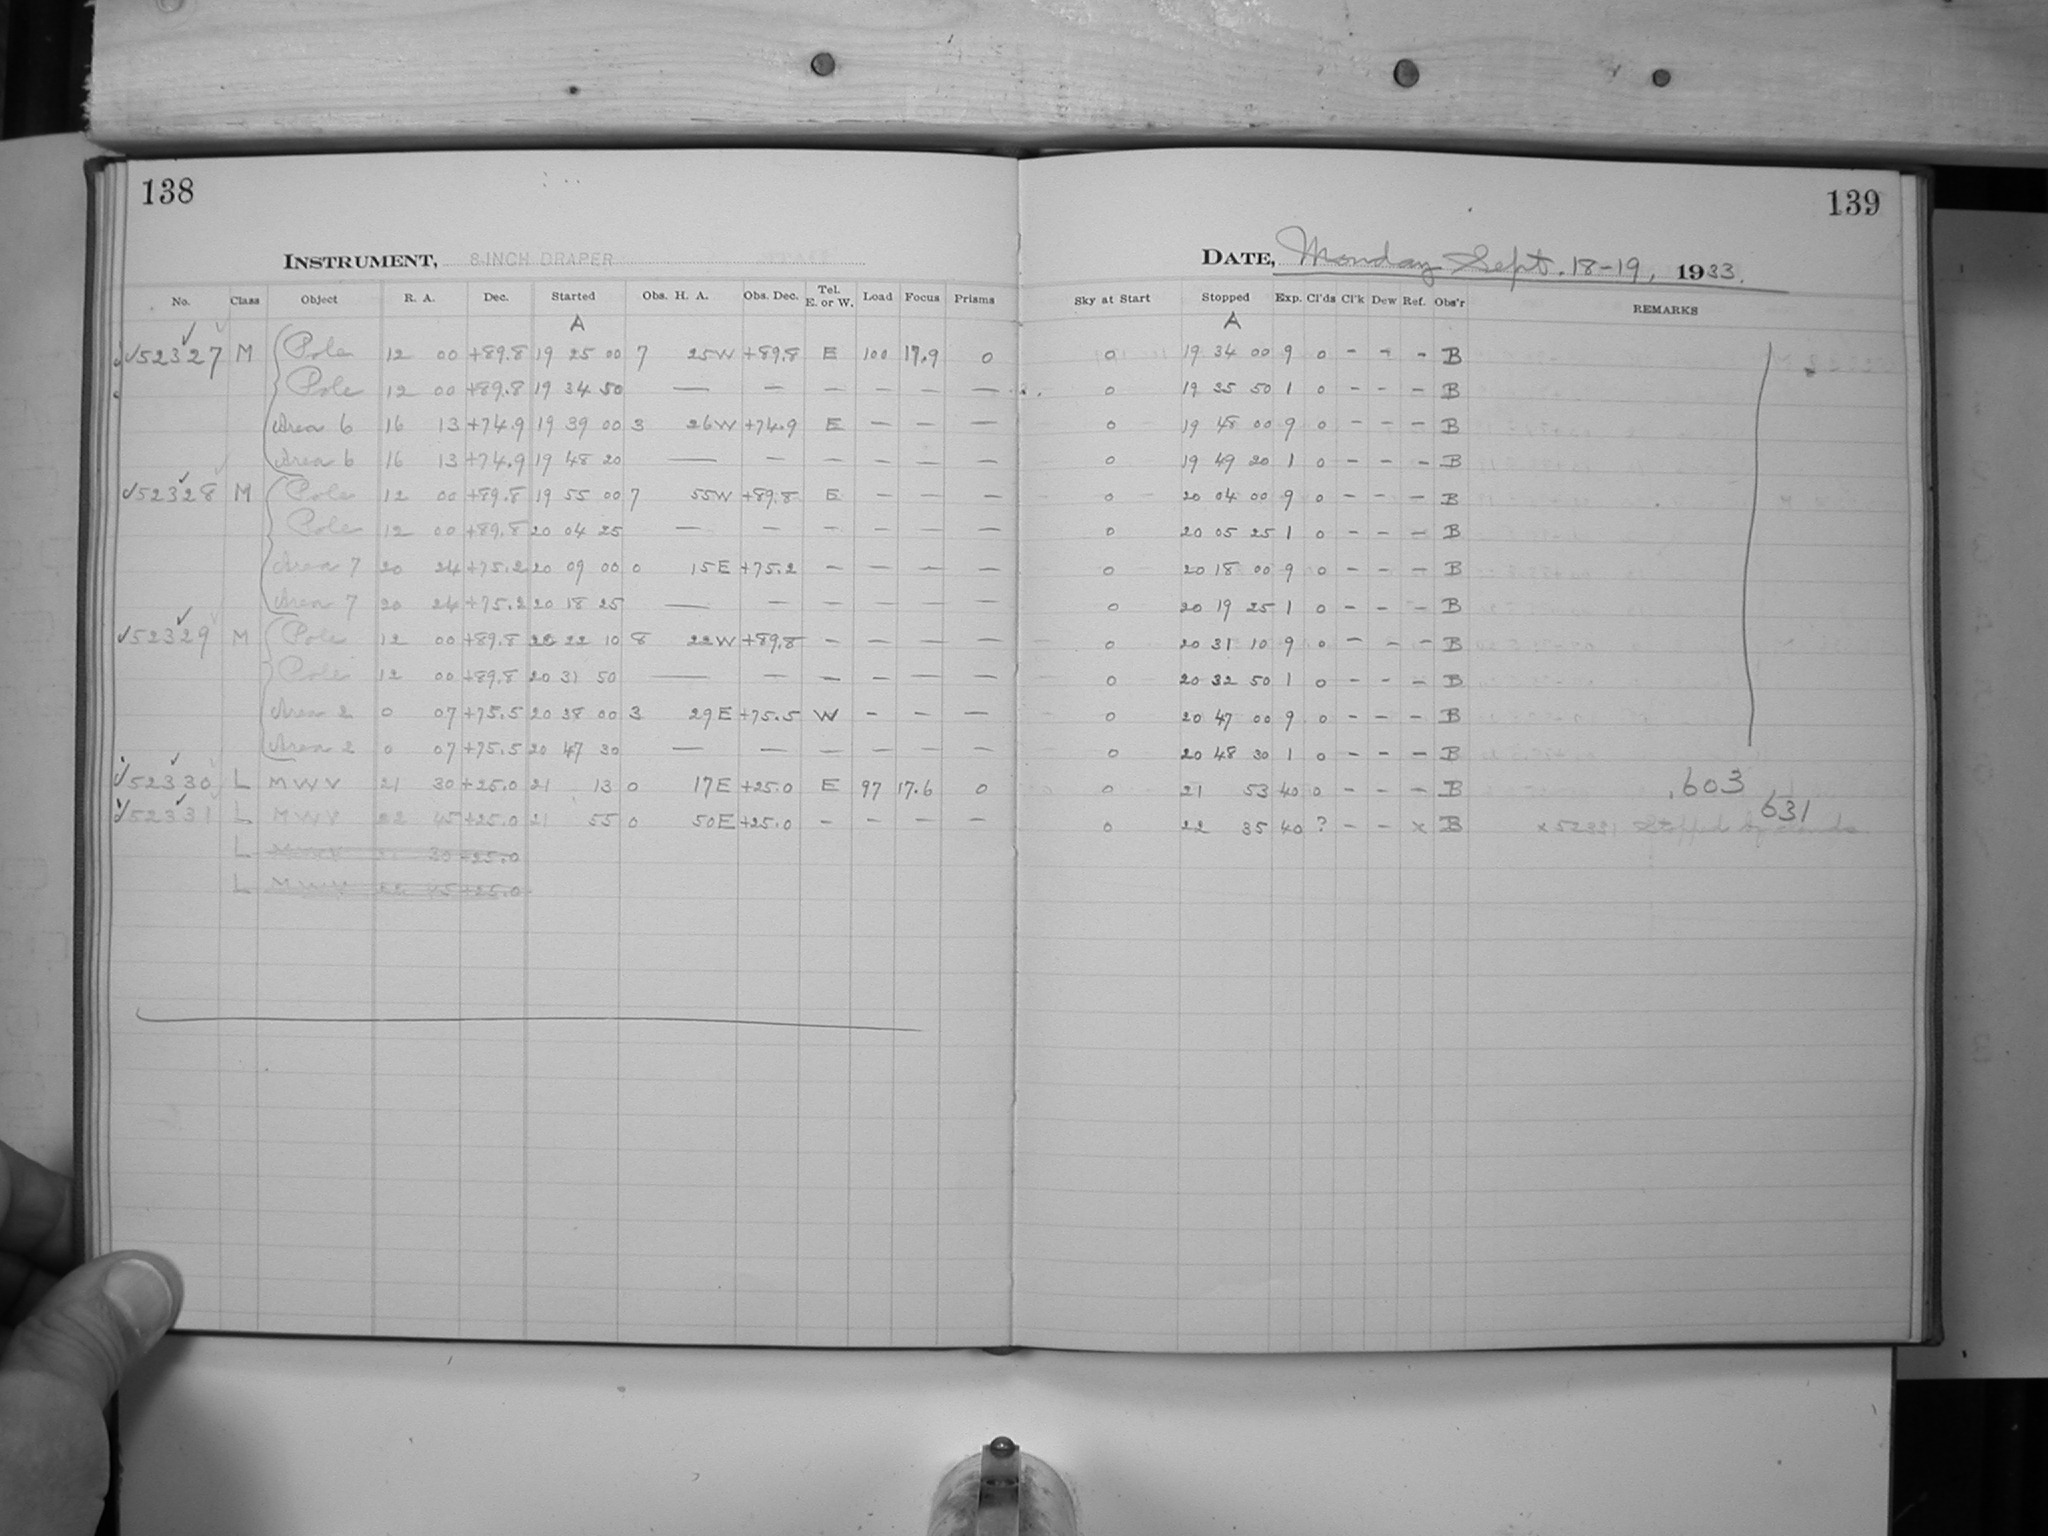 138
139
INSTRUMENT, 8-INCH DRAPER
DATE, Monday Sept. 18-19, 1933.
No. Class Object R. A. Dec. Started Obs. H. A. Obs. Dec. Tel. E. or W. Load Focus Prisms Sky at Start Stopped Exp. Cl'ds Cl'k Dew Ref. Obs'r REMARKS
A A
✓52327 M Pole 12 00 +89.8 19 25 00 7 25W +89.8 E 100 17.9 0 0 19 34 00 9 0 - - - B
Pole 12 00 +89.8 19 34 50 — — — — — — 0 19 35 50 1 0 - - - B
Area 6 16 13 +74.9 19 39 00 3 26W +74.9 E — — — 0 19 48 00 9 0 - - - B
Area 6 16 13 +74.9 19 48 20 — — — — — — 0 19 49 20 1 0 - - - B
✓52328 M Pole 12 00 +89.8 19 55 00 7 55W +89.8 E — — — 0 20 04 00 9 0 - - - B
Pole 12 00 +89.8 20 04 25 — — — — — — 0 20 05 25 1 0 - - - B
Area 7 20 24 +75.2 20 09 00 0 15E +75.2 — — — — 0 20 18 00 9 0 - - - B
Area 7 20 24 +75.2 20 18 25 — — — — — — 0 20 19 25 1 0 - - - B
✓52329 M Pole 12 00 +89.8 20 22 10 8 22W +89.8 — — — — 0 20 31 10 9 0 - - - B
Pole 12 00 +89.8 20 31 50 — — — — — — 0 20 32 50 1 0 - - - B
Area 2 0 07 +75.5 20 38 00 3 29E +75.5 W — — — 0 20 47 00 9 0 - - - B
Area 2 0 07 +75.5 20 47 30 — — — — — — 0 20 48 30 1 0 - - - B
✓52330 L MWV 21 30 +25.0 21 13 0 17E +25.0 E 97 17.6 0 0 21 53 40 0 - - - B .603
✓52331 L MWV 22 45 +25.0 21 55 0 50E +25.0 — — — — 0 22 35 40 ? - - x B x52331 Stopped by clouds 631
L MWV 21 30 +25.0
L MWV 22 45 +25.0